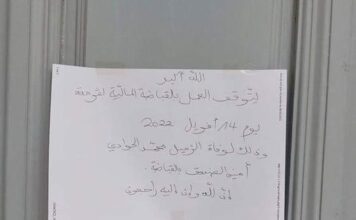 الله أكبر
يتوقف العمل بالقباضة المالية بقرمدة
يوم 14 أفريل 2022
وذلك لوفاة الزميل محمد الجوادي
أمين الصندوق بالقباضة.
إنّا لله وإنّا إليه راجعون